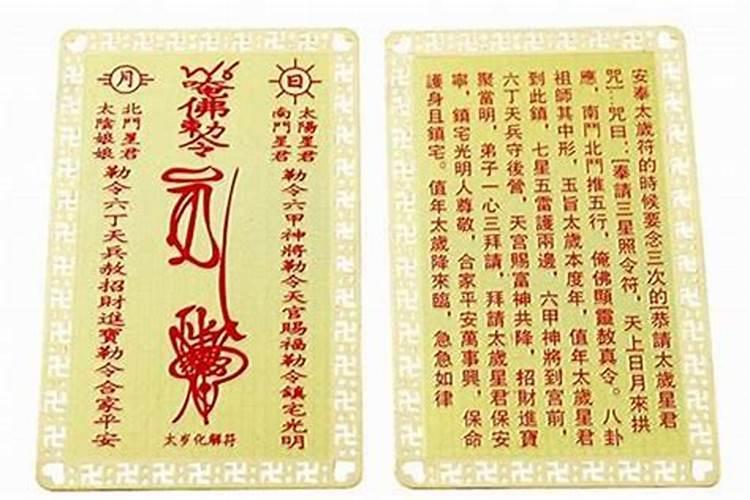 日
太陽星君
南鬥星君
勒令六甲神將勒令天官賜福勒令鎮宅光明
唵佛勅令
月
北鬥星君
太陰娘娘
勒令六丁天兵赦招財進寶勒令合家平安
太岁化解符
安奉太歲符的時候要念三次的[恭請太歲星君
咒]…咒曰：[奉請三星照令符，天上日月來拱
應，南鬥北鬥推五行，俺佛顯靈敖真令。八卦
祖師其中形，玉旨太歲本度年，值年太歲星君
到此鎮，七星五雷護兩邊，六甲神將到宮前，
六丁天兵守後營，天宮賜富神共降，招財進寶
聚當明，弟子一心三拜請，拜請太歲星君保安
寧，鎮宅光明人尊敬，合家平安萬事興，保命
護身且鎮宅。值年太歲降來臨，急急如律